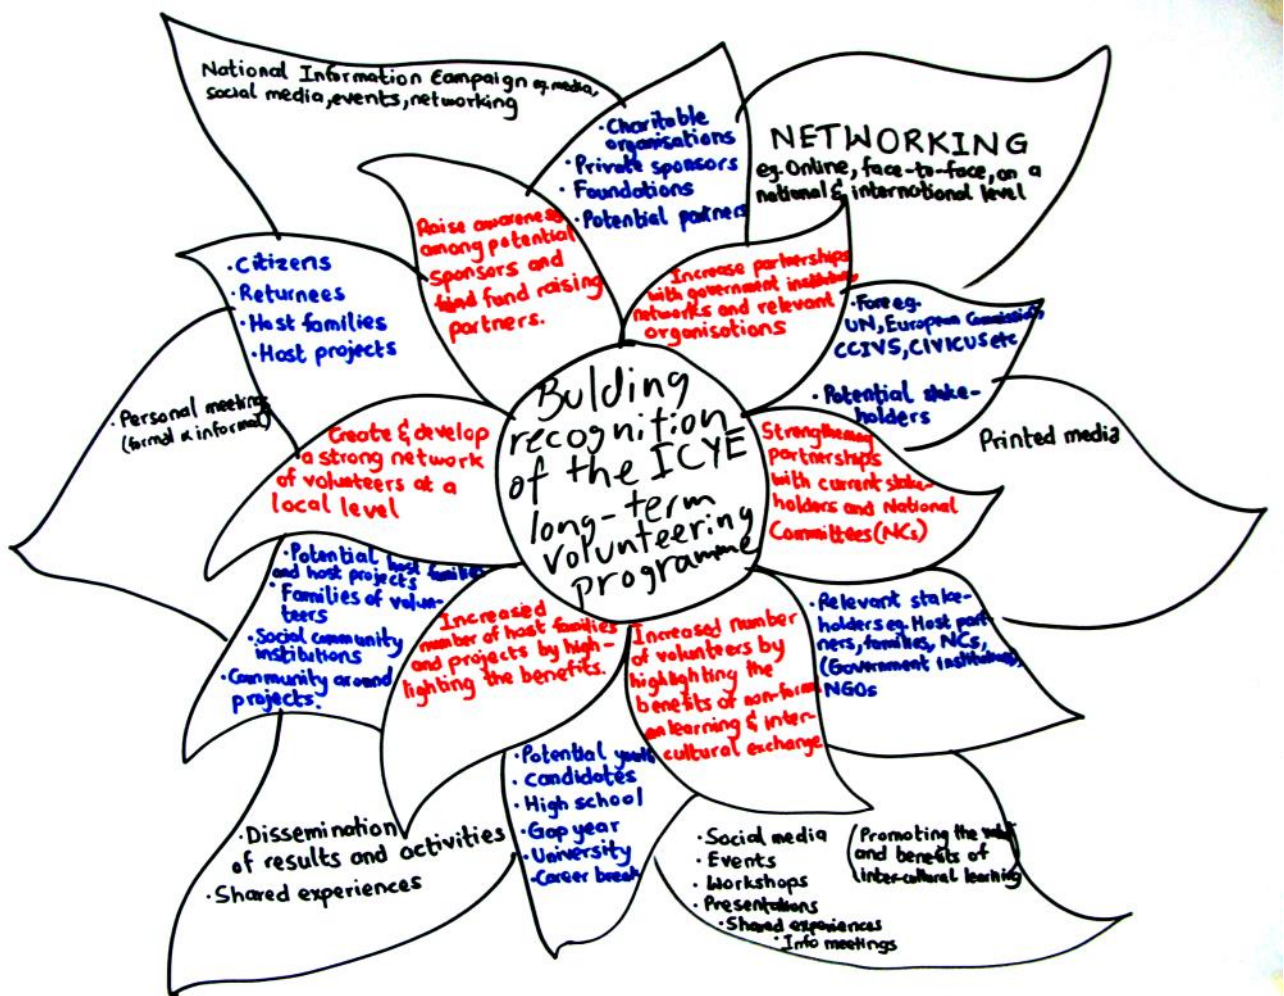 National Information Campaign eg. media,
social media, events, networking
• Charitable
organisations
• Private sponsors
• Foundations
• Potential partners
NETWORKING
eg. Online, face-to-face, on a
national & international level
Raise awareness
among potential
sponsors and
fund raising
partners.
Increase partnerships
with government institutions,
networks and relevant
organisations
• Citizens
• Returnees
• Host families
• Host projects
UN, European Commission,
CCIVS, CIVICUS etc
• Potential stake-
holders
• Personal meetings
(formal & informal)
Create & develop
a strong network
of volunteers at a
local level
Bulding
recognition
of the ICYE
long-term
volunteering
programme
Strengthening
partnerships
with current stake-
holders and National
Committees (NCs)
Printed media
• Potential host families
and host projects
• Families of volun-
teers
• Social community
institutions
• Community around
projects.
Increased
number of host families
and projects by high-
lighting the benefits.
Increased number
of volunteers by
highlighting the
benefits of non-formal
learning & inter-
cultural exchange
• Relevant stake-
holders eg. Host part-
ners, families, NCs,
(Government institutions),
NGOs
• Potential youth
• Candidates
• High school
• Gap year
• University
• Career break
• Dissemination
of results and activities
• Shared experiences
• Social media
• Events
• Workshops
• Presentations
• Shared experiences
• Info meetings
(Promoting the
and benefits of
inter-cultural learning)